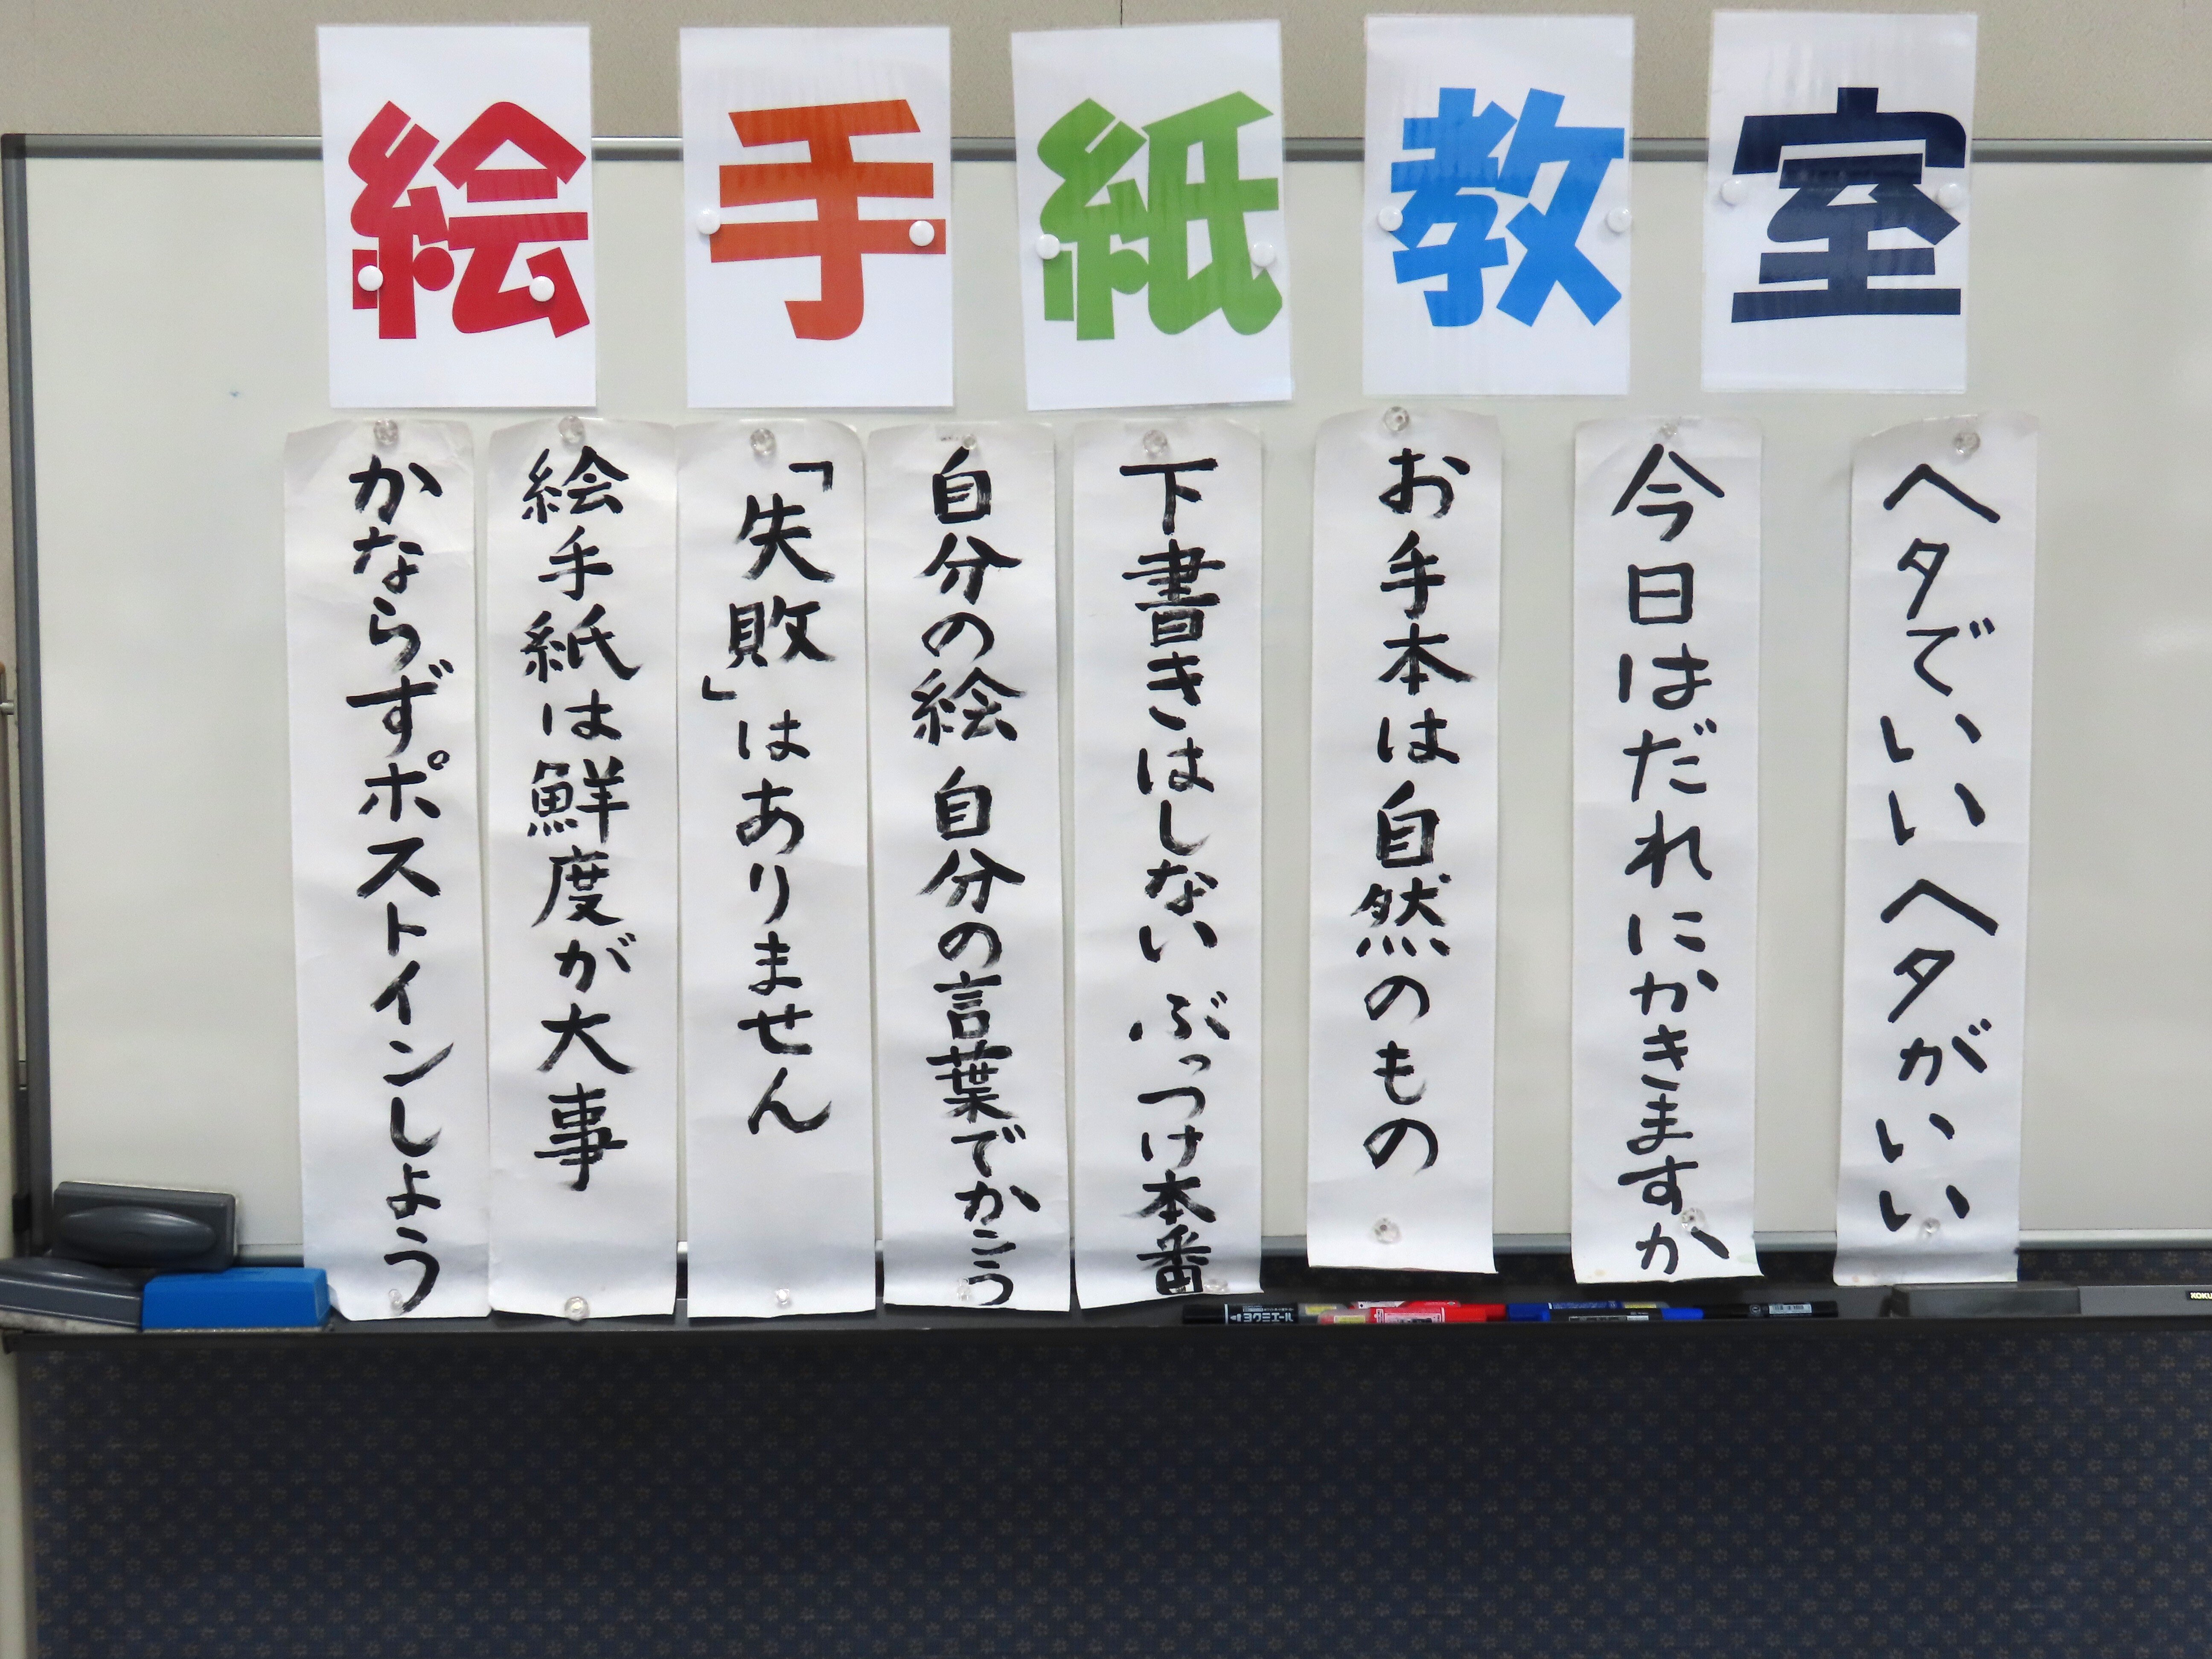 絵手紙教室
ヘタでいいヘタがいい
今日はだれにかきますか
お手本は自然のもの
下書きはしない ぶっつけ本番
自分の絵 自分の言葉でかこう
「失敗」はありません
絵手紙は鮮度が大事
かならずポストインしよう
ヨクミエール